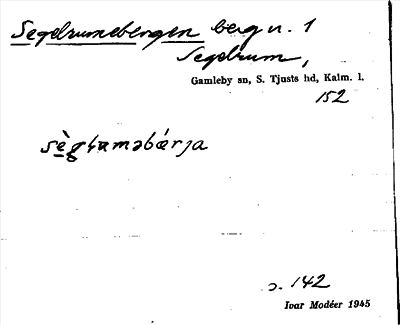 Segelrumsbergen berg n. 1
Segelrum,
Gamleby sn, S. Tjusts hd, Kalm. l.
152
p. 142
Ivar Modéer 1945